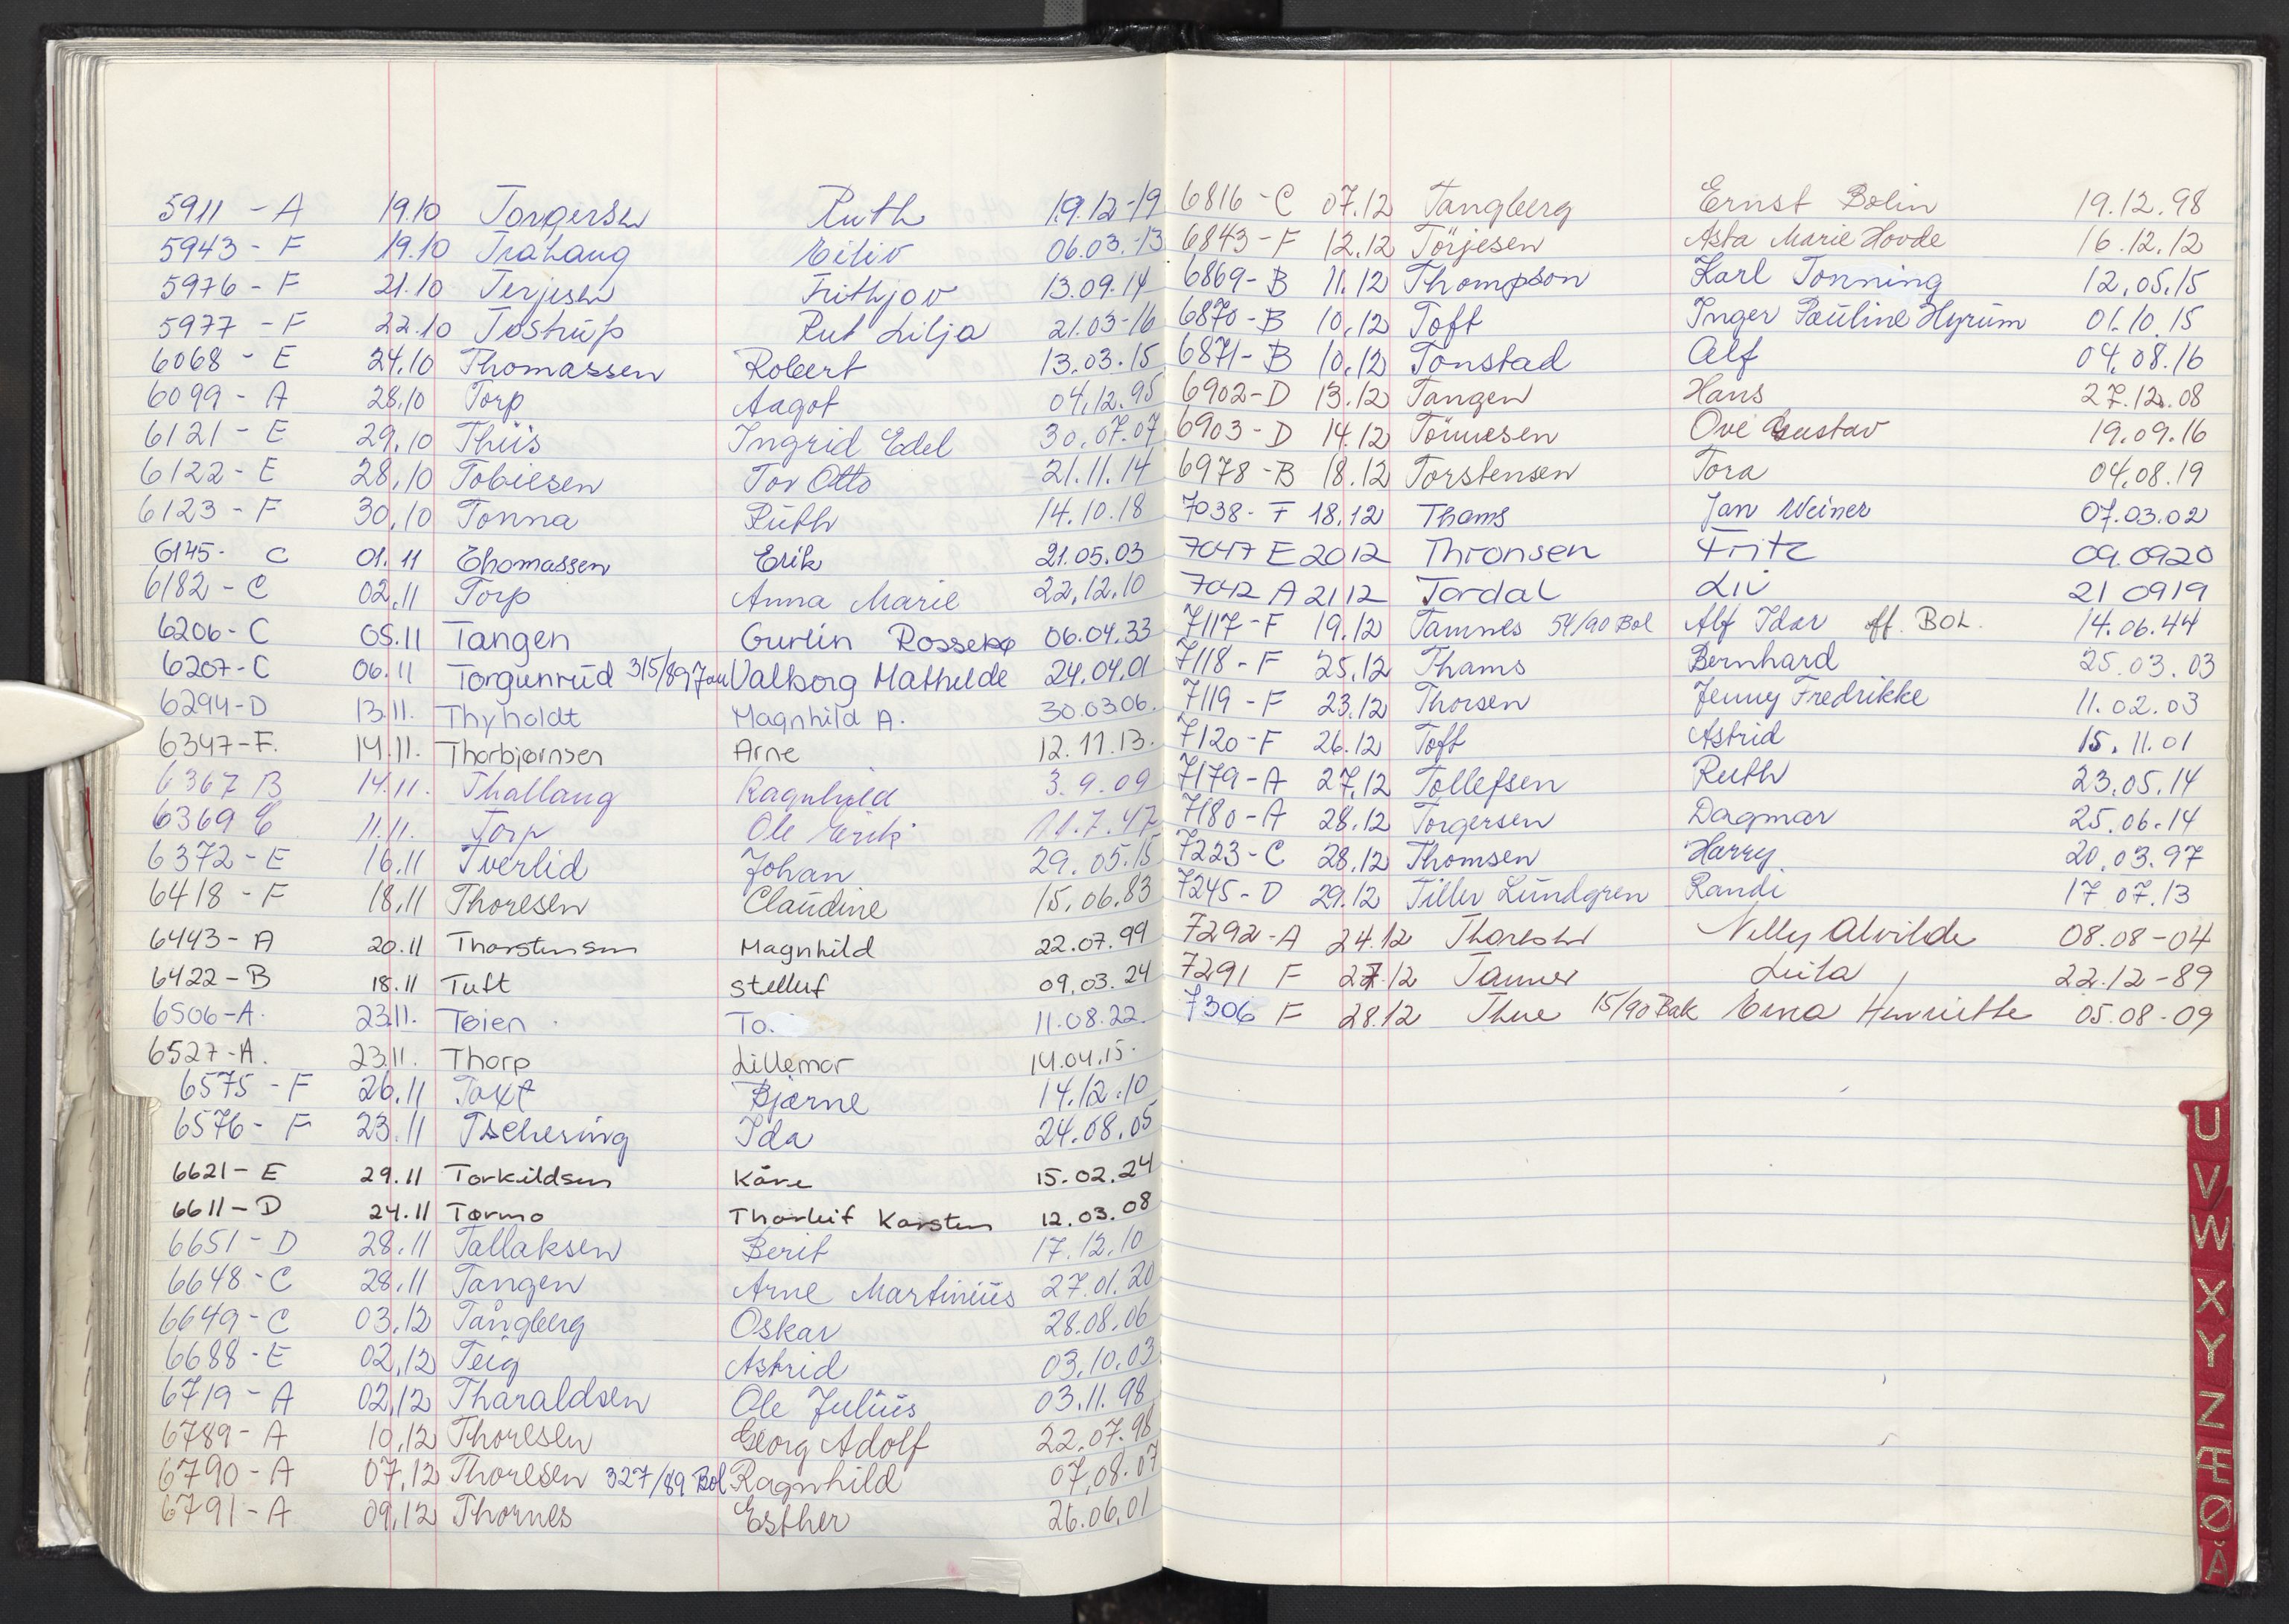 5911 - A 19.10 Torgersen Ruth 19.12-19
5943 - F 19.10 Trahaug Eiliv 06.03.-13
5976 - F 21.10 Terjesen Frithjov 13.09.14
5977 - F 22.10 Testrup Rut Lilja 21.03-16
6068 - E 24.10 Thomassen Robert 13.03.15
6099 - A 28.10 Torp Aagot 04.12.95
6121 - E 29.10 Thiis Ingrid Edel 30.07.07
6122 - E 28.10 Tobiesen Tor Otto 21.11.14
6123 - F 30.10 Tonna Ruth 14.10.18
6145- C 01.11 Thomassen Erik 21.05.03
6182 - C 02.11 Torp Anna Marie 22.12.10
6206 - C 05.11 Tangen Gurlin 06.04.33
6207 - C 06.11 Torgunrud 315/89 Valborg Mathilde 24.04.01
6294-D 13.11. Thyholdt Magnhild A. 30.03.06.
6347-F. 14.11. Thorbjørnsen Arne 12.11.13.
6367 B 14.11. Thallaug Ragnhild 3.9.09
6369 E 11.11. Torp Ole Erik 11.7.47
6372 - E 16.11 Tverlid Johan 29.05.15
6418 - F 18.11 Thoresen Claudine 15.06.83
6443 - A 20.11 Thorstensen Magnhild 22.07.99
6422 - B 18.11 Tuft Stelluf 09.03.24
6506-A. 23.11. Tøien To. 11.08.22.
6527-A. 23.11. Thorp Lillemor 14.04.15.
6575 - F 26.11 Taxt Bjarne 14.12.10
6576 - F 23.11 Tschering Ida 24.08.05
6621 - E 29.11 Torkildsen Kåre 15.02.24
6611 - D 24.11 Tormo Thorleif Karsten 12.03.08
6651 - D 28.11 Tallaksen Berit 17.12.10
6648 - C 28.11 Tangen Arne Martinius 27.01.20
6649 - C 03.12 Tångberg Oskar 28.08.06
6688 - E 02.12 Teig Astrid 03.10.03
6719 - A 02.12 Tharaldsen Ole Julius 03.11.98
6789 - A 10.12 Thoresen Georg Adolf 22.07.98
6790 - A 07.12 Thoresen 327/89 Bol Ragnhild 07.08.07
6791 - A 09.12 Thornes Esther 26.06.01
6816 - C 07.12 Tangberg Ernst Bolin 19.12.98
6843 - F 12.12 Törjesen Asta Marie Hovde 16.12.12
6869 - B 11.12 Thompson Karl Tonning 12.05.15
6870 - B 10.12 Toft Inger Pauline Hyrum 01.10.15
6871 - B 10.12 Tonstad Alf 04.08.16
6902 - D 13.12 Tangen Hans 27.12.08
6903 - D 14.12 Tönnesen Ove Gustav 19.09.16
6978 - B 18.12 Torstensen Tora 04.08.19
7038 - F 18.12 Thams Jan Weiner 07.03.02
7047 E 20 12 Thronsen Fritz 09.0920
7042 A 21 12 Tordal Liv 21 0919
7117 - F 19.12 Tamnes 54/90 Bol Alf Idar off. BOL. 14.06.44
7118 - F 25.12 Thams Bernhard 25.03.03
7119 - F 23.12 Thorsen Jenny Fredrikke 11.02.03
7120 - F 26.12 Toft Astrid 15.11.01
7179 - A 27.12 Tollefsen Ruth 23.05.14
7180 - A 28.12 Torgersen Dagmar 25.06.14
7223 - C 28.12 Thomsen Harry 20.03.97
7245 - D 29.12 Tiller Lundgren Randi 17 07.13
7292 - A 24.12 Thoresen Nelly Alvilde 08.08-04
7291 F 27.12 Tanner Leila 22.12-89
7306 F 28.12 Thue 15/90 Bak Erna Henriette 05.08-09
U
V
W
X
Y
Z
Æ
Ø
Å